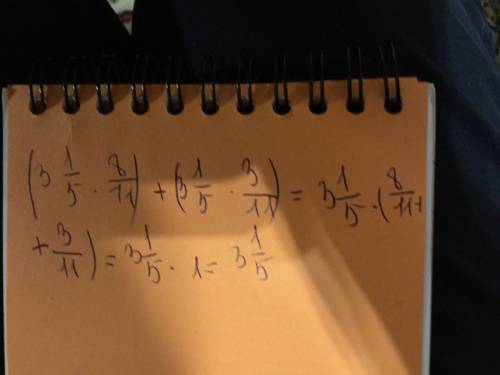 (3 1/5 · 8/11) + (3 1/5 · 3/11) = 3 1/5 · (8/11 +
+ 3/11) = 3 1/5 · 1 = 3 1/5